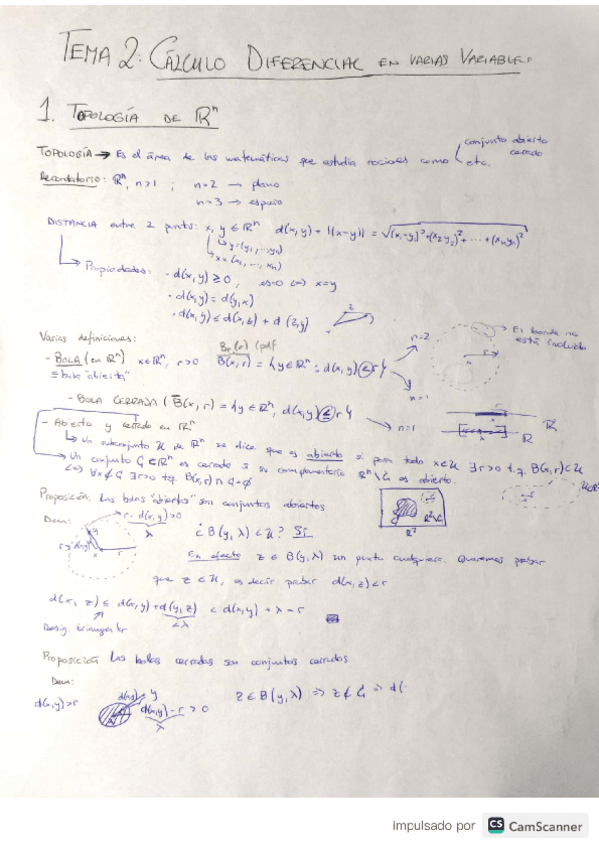 TEMA 2: CÁLCULO DIFERENCIAL EN VARIAS VARIABLES
1. TOPOLOGÍA DE ℝⁿ
TOPOLOGÍA → Es el área de las matemáticas que estudia nociones como
conjunto abierto
cerrado
etc.
Recordatorio: ℝⁿ, n>1 ; n=2 → plano
n=3 → espacio
DISTANCIA entre 2 puntos: x, y ∈ ℝⁿ d(x,y) = ||x-y|| = √(x₁-y₁)²+(x₂-y₂)²+...+(xₙ-yₙ)²
y=(y₁,...,yₙ)
x=(x₁,...,xₙ)
Propiedades: · d(x,y) ≥ 0, es=0 ⇔ x=y
· d(x,y) = d(y,x)
· d(x,y) ≤ d(x,z) + d(z,y)
z
Varias definiciones:
Bᵣ(x) (pdf
- BOLA (en ℝⁿ) x∈ℝⁿ, r>0 B(x,r) = {y∈ℝⁿ : d(x,y) < r}
≡ bola "abierta"
n=2
n=1
El borde no está incluido
- BOLA CERRADA (B̄(x,r) = {y∈ℝⁿ, d(x,y) ≤ r}
n=1
ℝ
ℝ
- Abierto y cerrado en ℝⁿ
↳ Un subconjunto U de ℝⁿ se dice que es abierto si para todo x∈U ∃r>0 t.q. B(x,r)⊂U
↳ Un conjunto G⊂ℝⁿ es cerrado si su complementario ℝⁿ\G es abierto.
⇔ ∀x∉G ∃r>0 t.q. B(x,r)∩G=∅
Proposición: Las bolas "abiertas" son conjuntos abiertos
Dem:
r-d(x,y)>0
λ
¿B(y,λ)⊂U? Sí
ℝ²\G
ℝ²
En efecto z∈B(y,λ) un punto cualquiera. Queremos probar
que z∈U, es decir probar d(x,z)<r
d(x,z) ≤ d(x,y)+d(y,z) < d(x,y)+λ=r
<λ
Desig. triangular
Proposición Las bolas cerradas son conjuntos cerrados
Dem:
d(x,y)>r
d(x,y) y
d(x,y)-r>0
λ
z∈B(y,λ) ⇒ z∉G ⇒ d(
impulsado por CS CamScanner